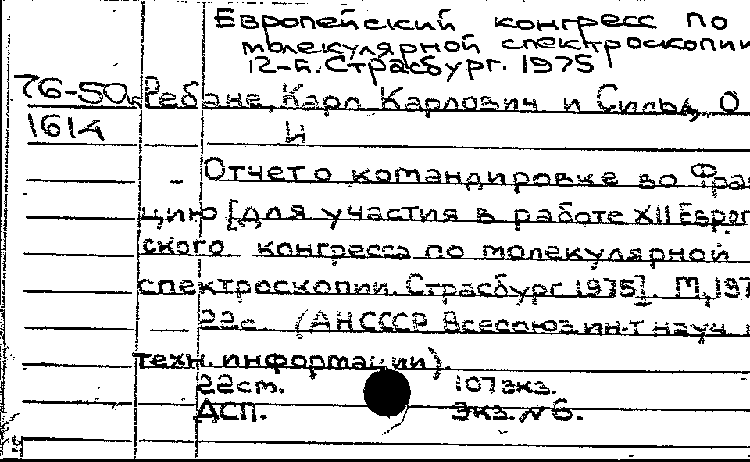 Европейский конгресс по
молекулярной спектроскопии
12-й. Страсбург. 1975
76-50к Ребане, Карл Карлович и Сильд, О
1614 И
– Отчет о командировке во Фран
цию [для участия в работе XII Европ
ского конгресса по молекулярной
спектроскопии. Страсбург 1975]. М, 197
22с. (АН СССР Всесоюз ин-т науч
техн. информации).
22см. 107экз.
ДСП. Экз. № 6.